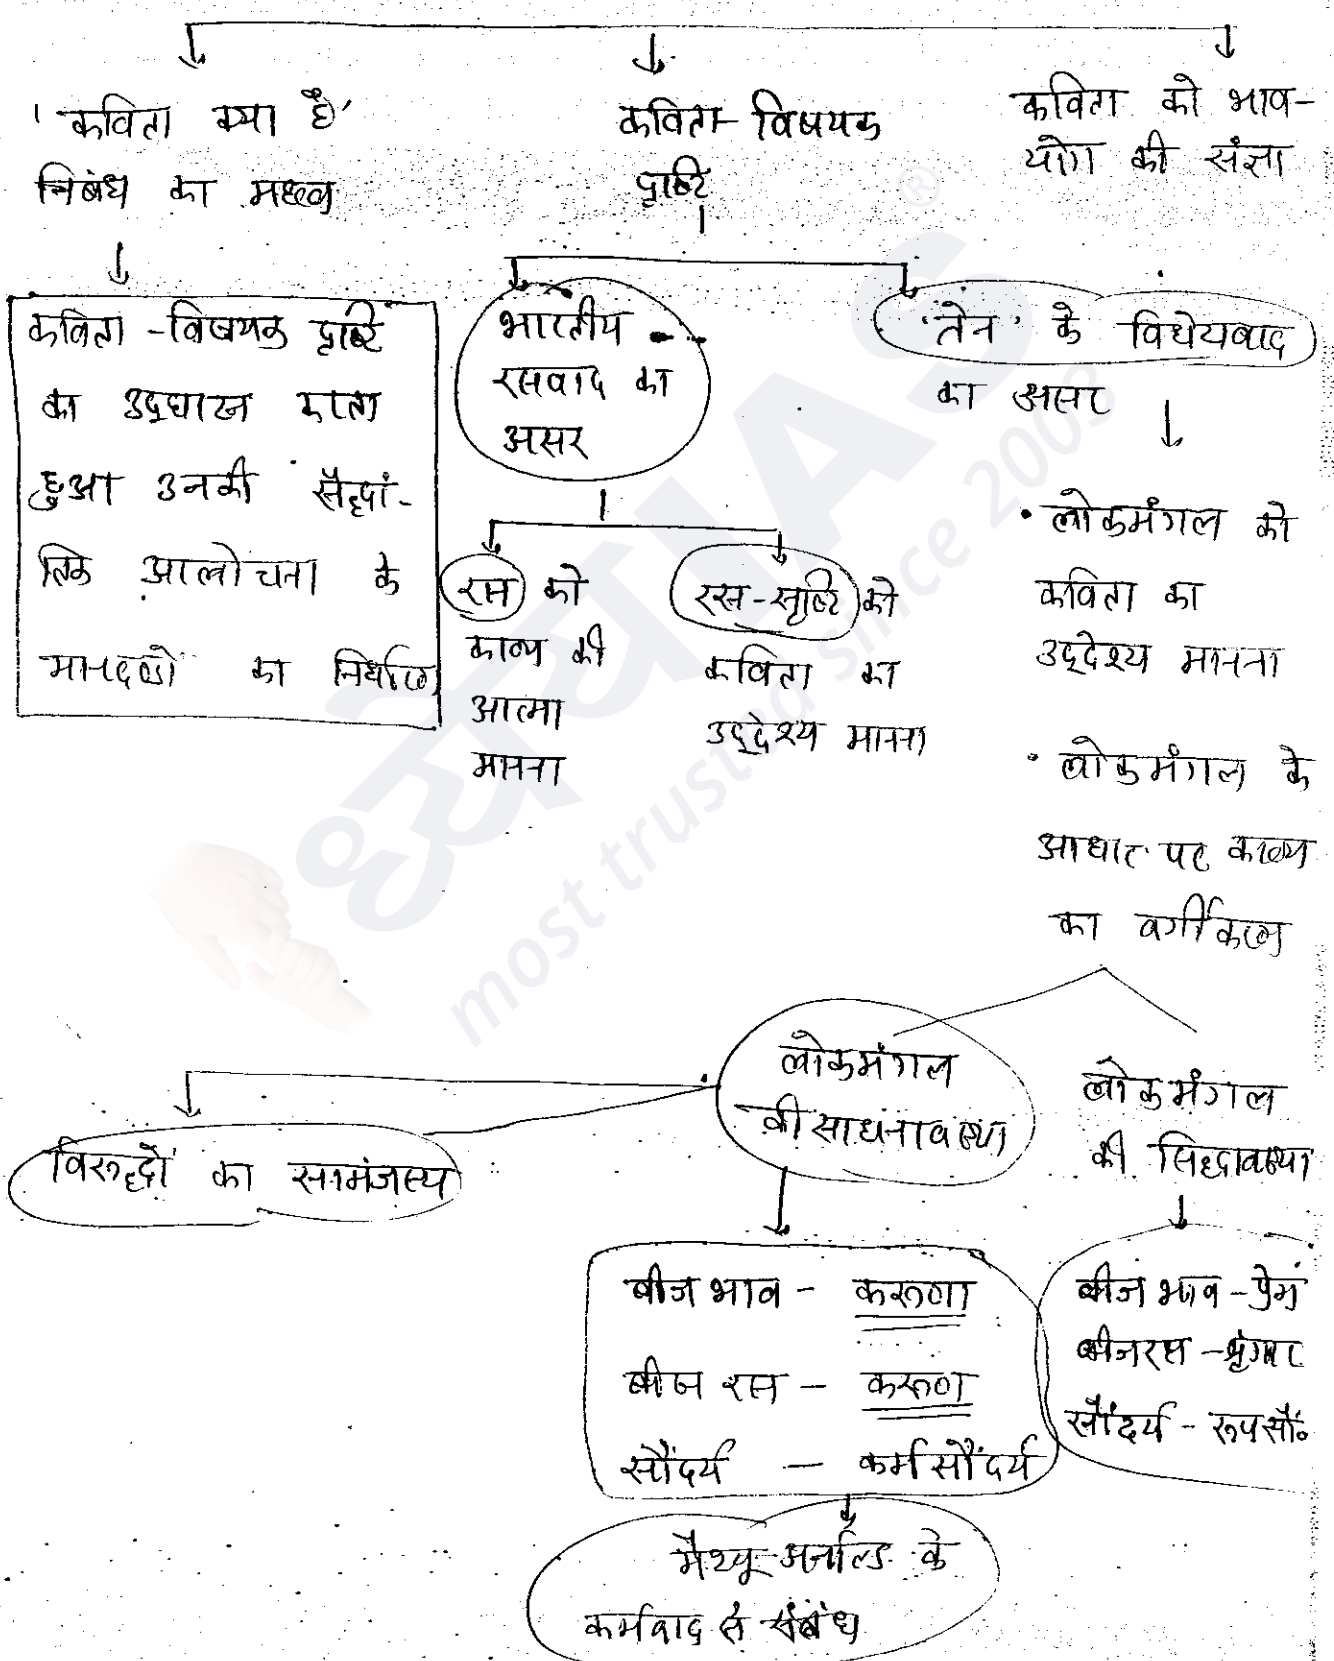 'कविता क्या है'
निबंध का महत्व
कविता-विषयक
दृष्टि
कविता को भाव-
योग की संज्ञा
कविता-विषयक दृष्टि
का उद्घाटन करता
हुआ उनकी सैद्धां-
तिक आलोचना के
मानदण्डों का निर्धारण
भारतीय
रसवाद का
असर
'तेन' के विधेयवाद
का असर
रस को
काव्य की
आत्मा
मानना
रस-सृष्टि को
कविता का
उद्देश्य मानना
• लोकमंगल को
कविता का
उद्देश्य मानना
• लोकमंगल के
आधार पर काव्य
का वर्गीकरण
लोकमंगल
की साधनावस्था
लोकमंगल
की सिद्धावस्था
विरूद्धों का सामंजस्य
बीज भाव - करूणा
बीज रस - करूण
सौंदर्य - कर्म सौंदर्य
बीज भाव - प्रेम
बीजरस - श्रृंगार
सौंदर्य - रूप सौं॰
मैथ्यू अर्नाल्ड के
कर्मवाद से संबंध
ध्येय IAS ®
most trusted since 2003